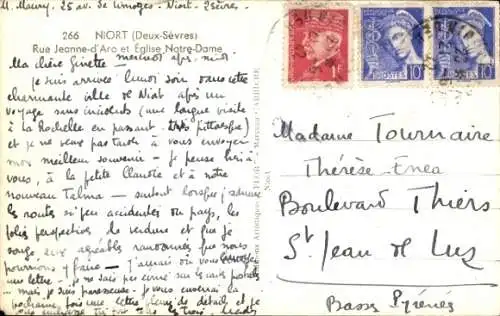 M. Maury. 25 av. de Limoges - Niort - 2 Sèvres.
266 NIORT (Deux-Sèvres)
Rue Jeanne-d'Arc et Église Notre-Dame
Ma chère Ginette mercredi après-midi
je suis arrivée lundi soir dans cette
charmante ville de Niort après un
voyage sans incidents (une longue visite
à la Rochelle en passant très pittoresque)
et je ne veux pas tarder à vous envoyer
mon meilleur souvenir - je pense bien à
vous, à la petite Claudie et à notre
nouveau Talma - surtout lorsque
les routes si peu accidentées du pays, les
jolies perspectives de verdure et que je
songe aux agréables randonnées que nous
pourrions y faire - j'aurais dû vous envoyer
une lettre - je ne sais pas écrire sur les cartes postales
- mais je suis paresseuse. je vous enverrai la
prochaine fois une lettre pleine de détails et je
vous embrasse tous les trois
1F
POSTES 10
POSTES 10
Madame Tournaire
Thérèse Enea
Boulevard Thiers
St Jean de Luz
Basses Pyrénées